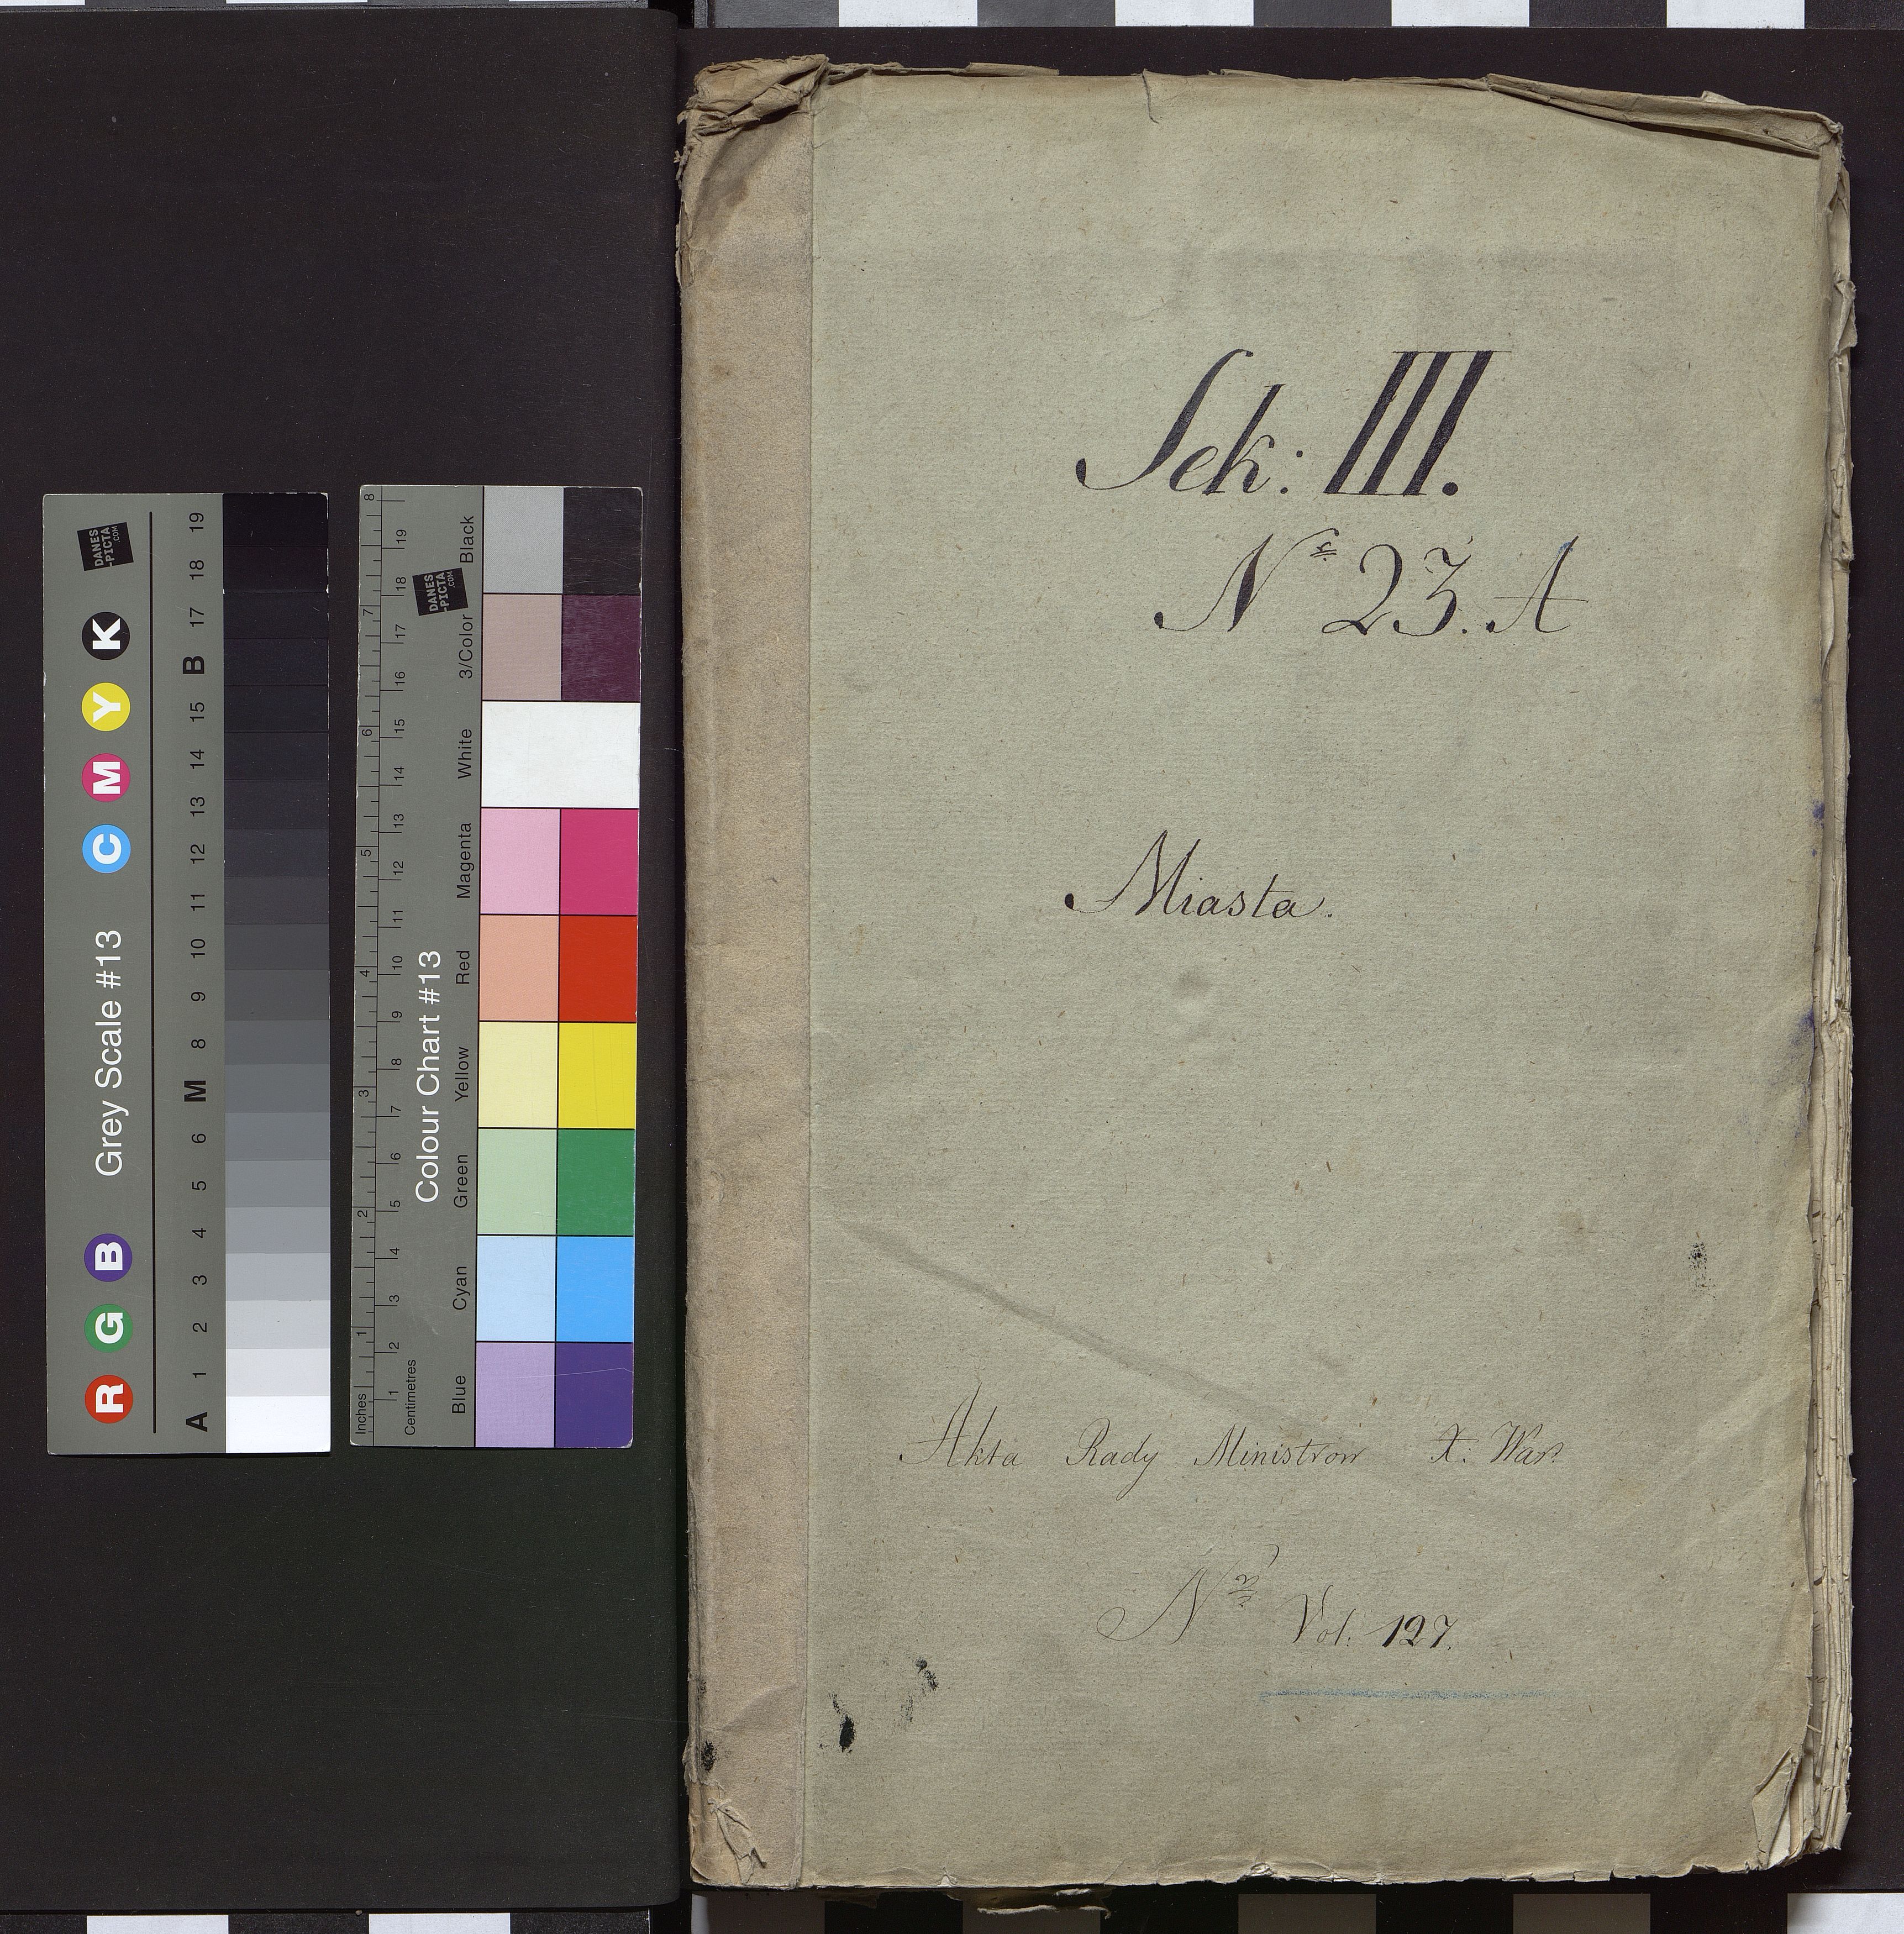 Sek: III.
Nº 23. A
Miasta.
Akta Rady Ministrow X: War:
Nº Vol: 127.
DANES
-PICTA
.COM
R G B Grey Scale #13 C M Y K
A 1 2 3 4 5 6 M 8 9 10 11 12 13 14 15 B 17 18 19
Inches 1 2 3 4 5 6 7 8
Centimetres 1 2 3 4 5 6 7 8 9 10 11 12 13 14 15 16 17 18 19
Colour Chart #13
DANES
-PICTA
.COM
Blue Cyan Green Yellow Red Magenta White 3/Color Black